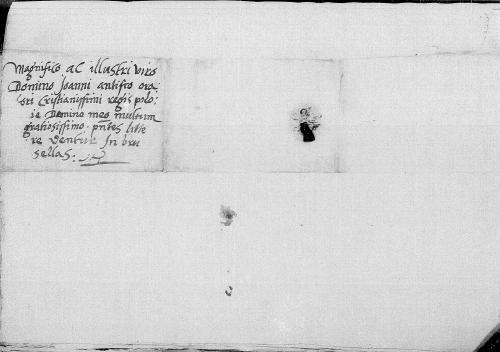 Magnifico ac illustri viro
Domino Joanni antisco ora
tori Cristianissimi regis polo:
ie Domino meo multum
gratiosissimo. pntes litte
re dentur In bru
sellas: